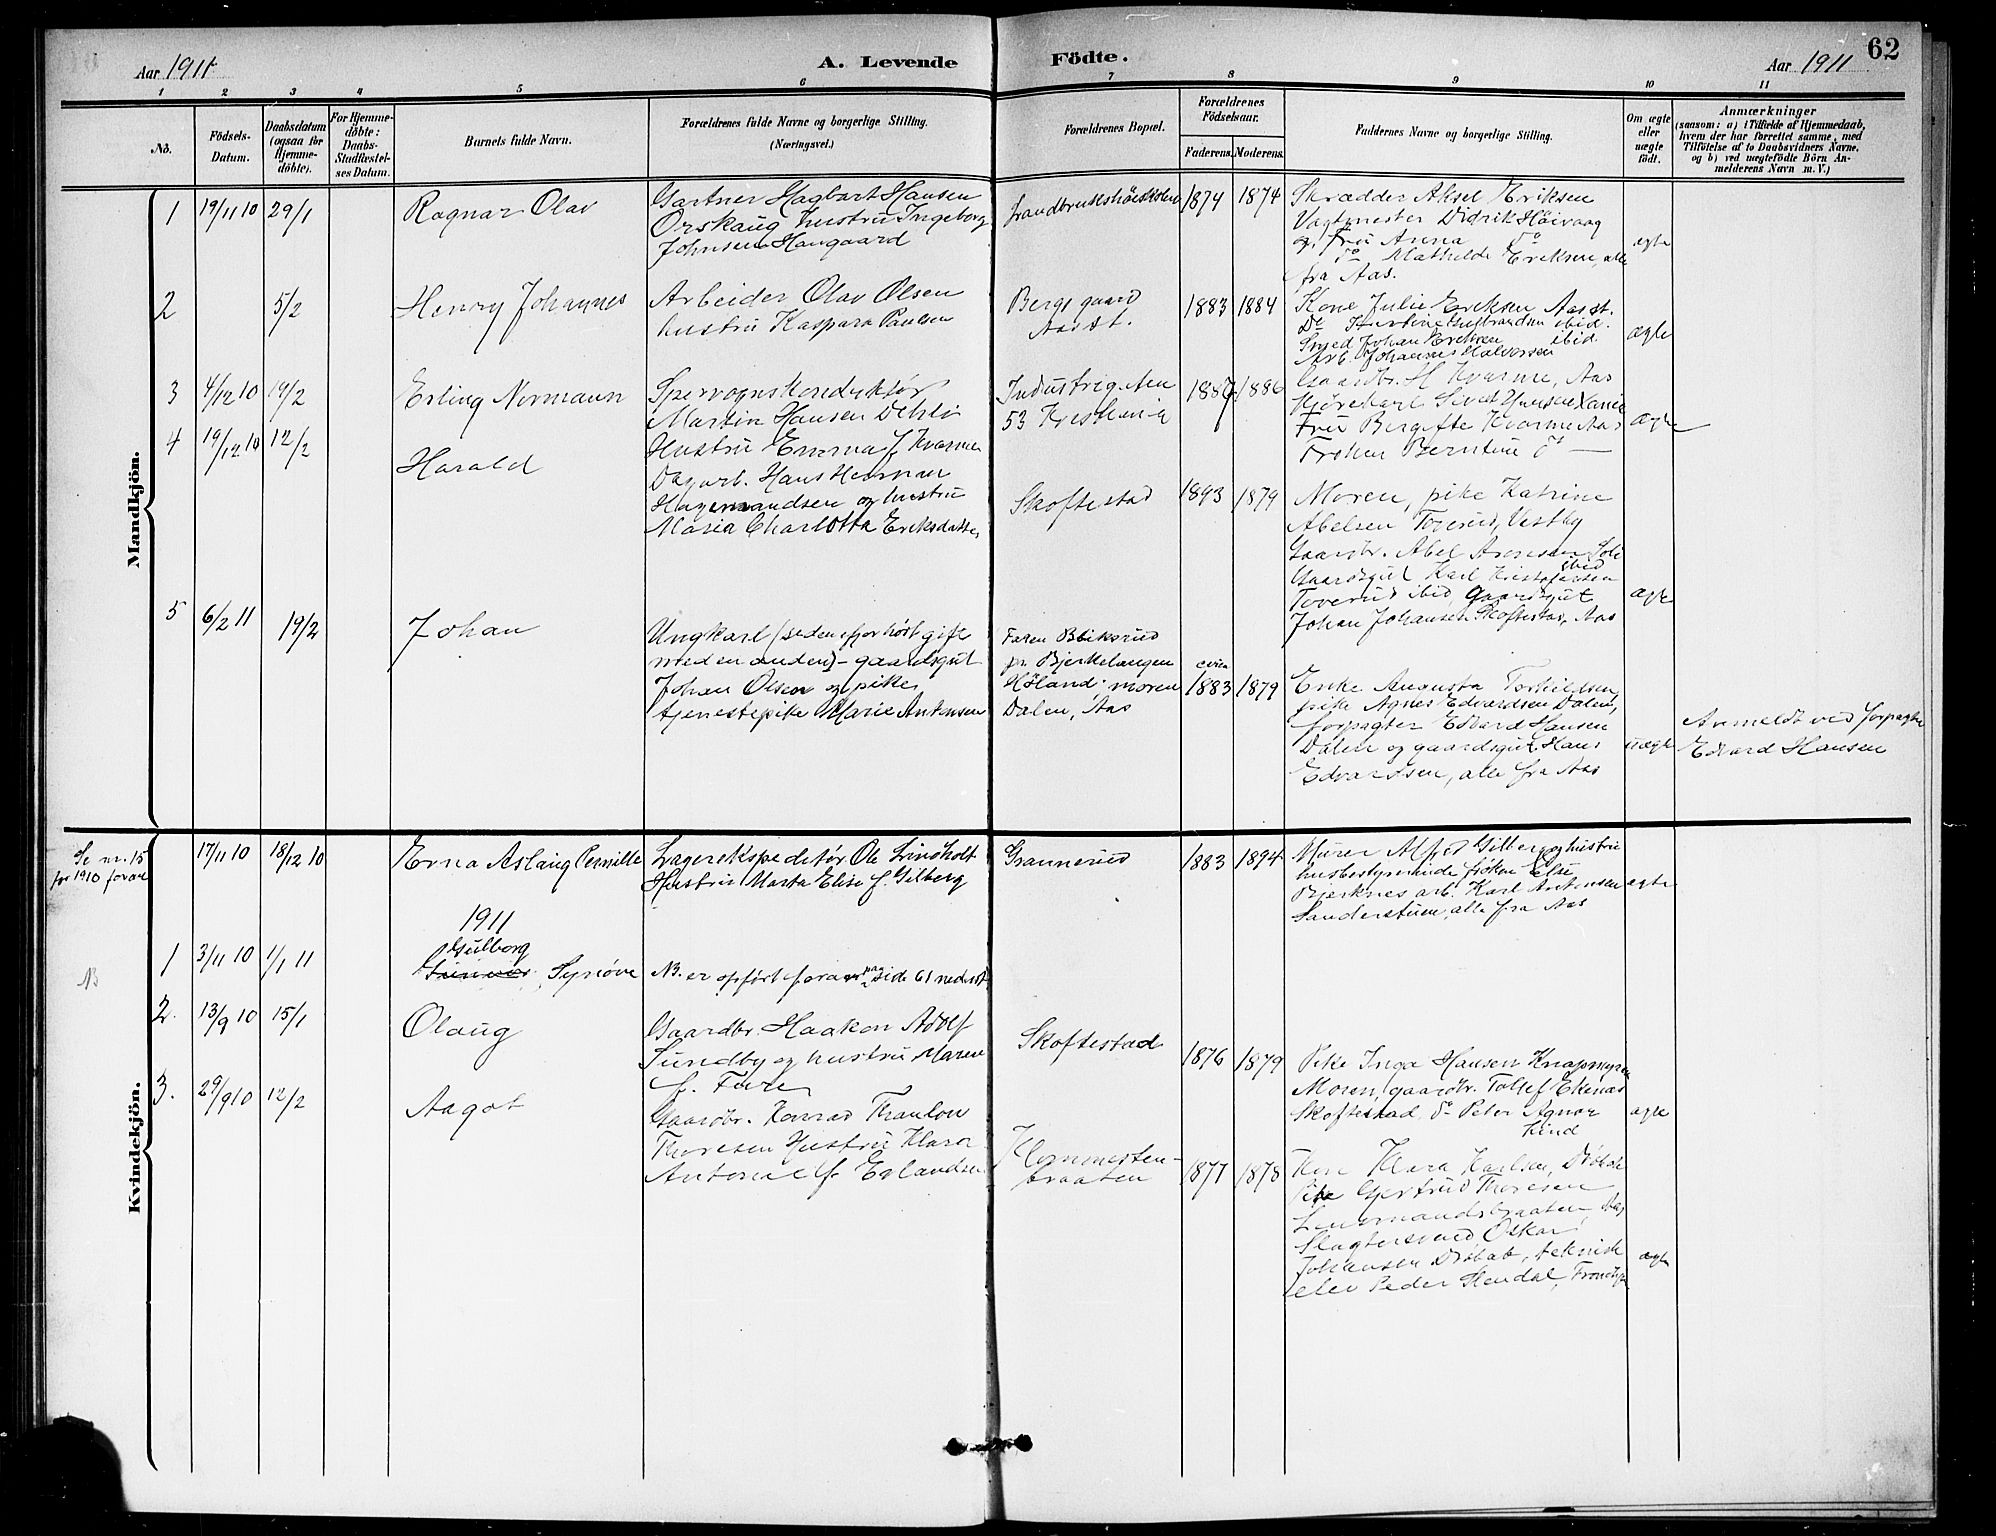 Aar 1911
A. Levende Födte.
Aar 1911
62
1 2 3 4 5 6 7 8 9 10 11
No.
Födsels-Datum.
Daabsdatum (ogsaa for Hjemme-döbte).
For Hjemme-döbte: Daabs-Stadfæstel-ses Datum.
Barnets fulde Navn.
Forældrenes fulde Navne og borgerlige Stilling.
(Næringsvei.)
Forældrenes Bopæl.
Forældrenes Födselsaar.
Faderens. Moderens.
Faddernes Navne og borgerlige Stilling.
Om ægte eller uægte födt.
Anmærkninger
(saasom: a) i Tilfælde af Hjemmedaab, hvem der har forrettet samme, med Tilföielse af to Daabsvidners Navne, og b) ved uægtefödte Börn An-melderens Navn m. V.)
Mandkjön.
1 19/11 10 29/1
Ragnar Olav
Gartner Hagbart Hansen
Orskaug hustru Ingeborg
Johnsen Haugaard
Landbrukshöiskolen
1874 1874
Skrædder Aksel Eriksen
Vagtmester Didrik Höivaag
og Fru Anna do
do Mathilde Eriksen, alle
fra Aas.
ægte
2 5/2
Henry Johannes
Arbeider Olav Olsen
hustru Kaspara Paulsen
Berge gaard
Aas st.
1883 1884
Kone Julie Eriksen Aas st.
Do Gulbrandsen ibid.
Smed Johan Eriksen ibid.
Arb. Johannes Halvorsen
ægte
3 4/12 10 19/2
Erling Normann
Sporvognskonduktör
Martin Hansen Dehli
Hustru Emma f. Kvarme
Industrigaten
53 Kristiania
1887 1886
Gaardbr. H Kvarme, Aas
Kjörekarl
Fru Bergitte Kvarme Aas
Fröken Berntine do
ægte
4 19/12 10 12/2
Harald
Dagarb. Hans Herman
Hagemandsen og hustru
Maria Charlotta Eriksdatter
Skoftestad
1893 1879
Moren, pike Katrine
Abelsen Toverud, Vestby
Gaardbr. Abel Arnesen Soli
ibid
Gaardsgut Karl Kristofersen
Toverud ibid, gaardsgut
Johan Johansen Skoftestad, Aas
ægte
5 6/2 11 19/2
Johan
Ungkarl (siden efter hört gift
med en anden) - gaardsgut
Johan Olsen og pike,
tjenestepike Marie Antonsen
Faren Bliksrud
pr. Bjerkelangen
Höland; moren
Dalen, Aas
circa
1883 1879
Enke Augusta Torkildsen,
pike Agnes Edvardsen Dalen,
forpagter Edvard Hansen
Dalen og gaardsgut Hans
Edvardsen, alle fra Aas
uægte
Anmeldt ved forpagter
Edvard Hansen
Kvindekjön.
Se nr. 15
for 1910 foran
17/11 10 18/12 10
Erna Aslaug Pernille
Lagerekspeditör Ole Lindholt
Hustru Marta Elise f. Gilberg
Granerud
1883 1894
Murer Alfred Gilberg og hustru
husbestyrerinde fröken Else
Bjerknes arb. Karl Antonsen
Sanderstuen, alle fra Aas
ægte
1911
NB
1 3/11 10 1/1 11
Gulborg
Synöve
NB. er opfört foran paa side 61 nederst
2. 13/9 10 15/1
Olaug
Gaardbr. Haakon Adolf
Sundby og hustru Maren
f. Tove
Skoftestad
1876 1879
Pike Inga Hansen Knapmyren
Moren, gaardbr. Tollef Ekenæs
Skoftestad, do Peter Agnar
Kind
ægte
3. 29/9 10 12/2
Aagot
Gaardbr. Konrad Thaulow
Thoresen Hustru Klara
Antonie f. Erlandsen
Klommesten-
braaten
1877 1878
Kone Klara Karlsen, Dröbak
Pike Gjertrud Thoresen
Lensmandsbraaten, Aas
Slagtersvend Oskar
Johansen Dröbak, teknisk
elev Peder Stendal,
ægte